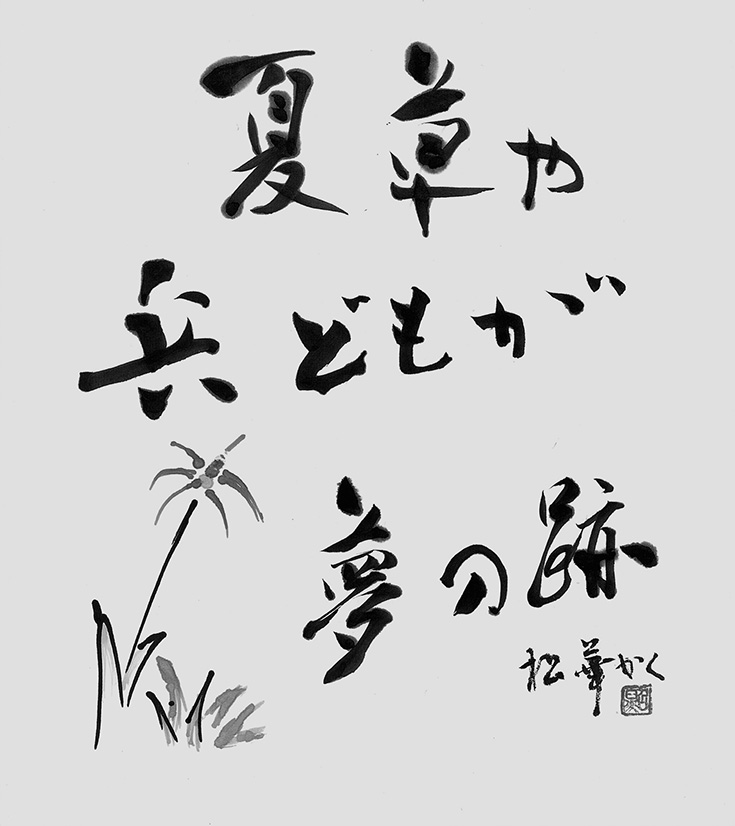 夏草や
兵どもが
夢の跡
松華かく